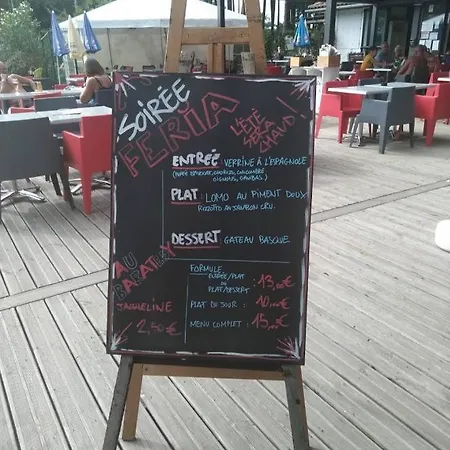 SOIRÉE
FERIA
L'ÉTÉ
SERA
CHAUD!
ENTRÉE VERRINE À L'ESPAGNOLE
CHORIZO, CONCOMBRE
OIGNONS, GAMBAS.)
PLAT: LOMO AU PIMENT DOUX
RIZOTTO AU JAMBON CRU.
DESSERT: GATEAU BASQUE
FORMULE:
ENTRÉE/PLAT
OU
PLAT/DESSERT : 13,00€
PLAT DE JOUR : 10,00€
MENU COMPLET : 15,00€
AU
JACQUELINE
2,50€